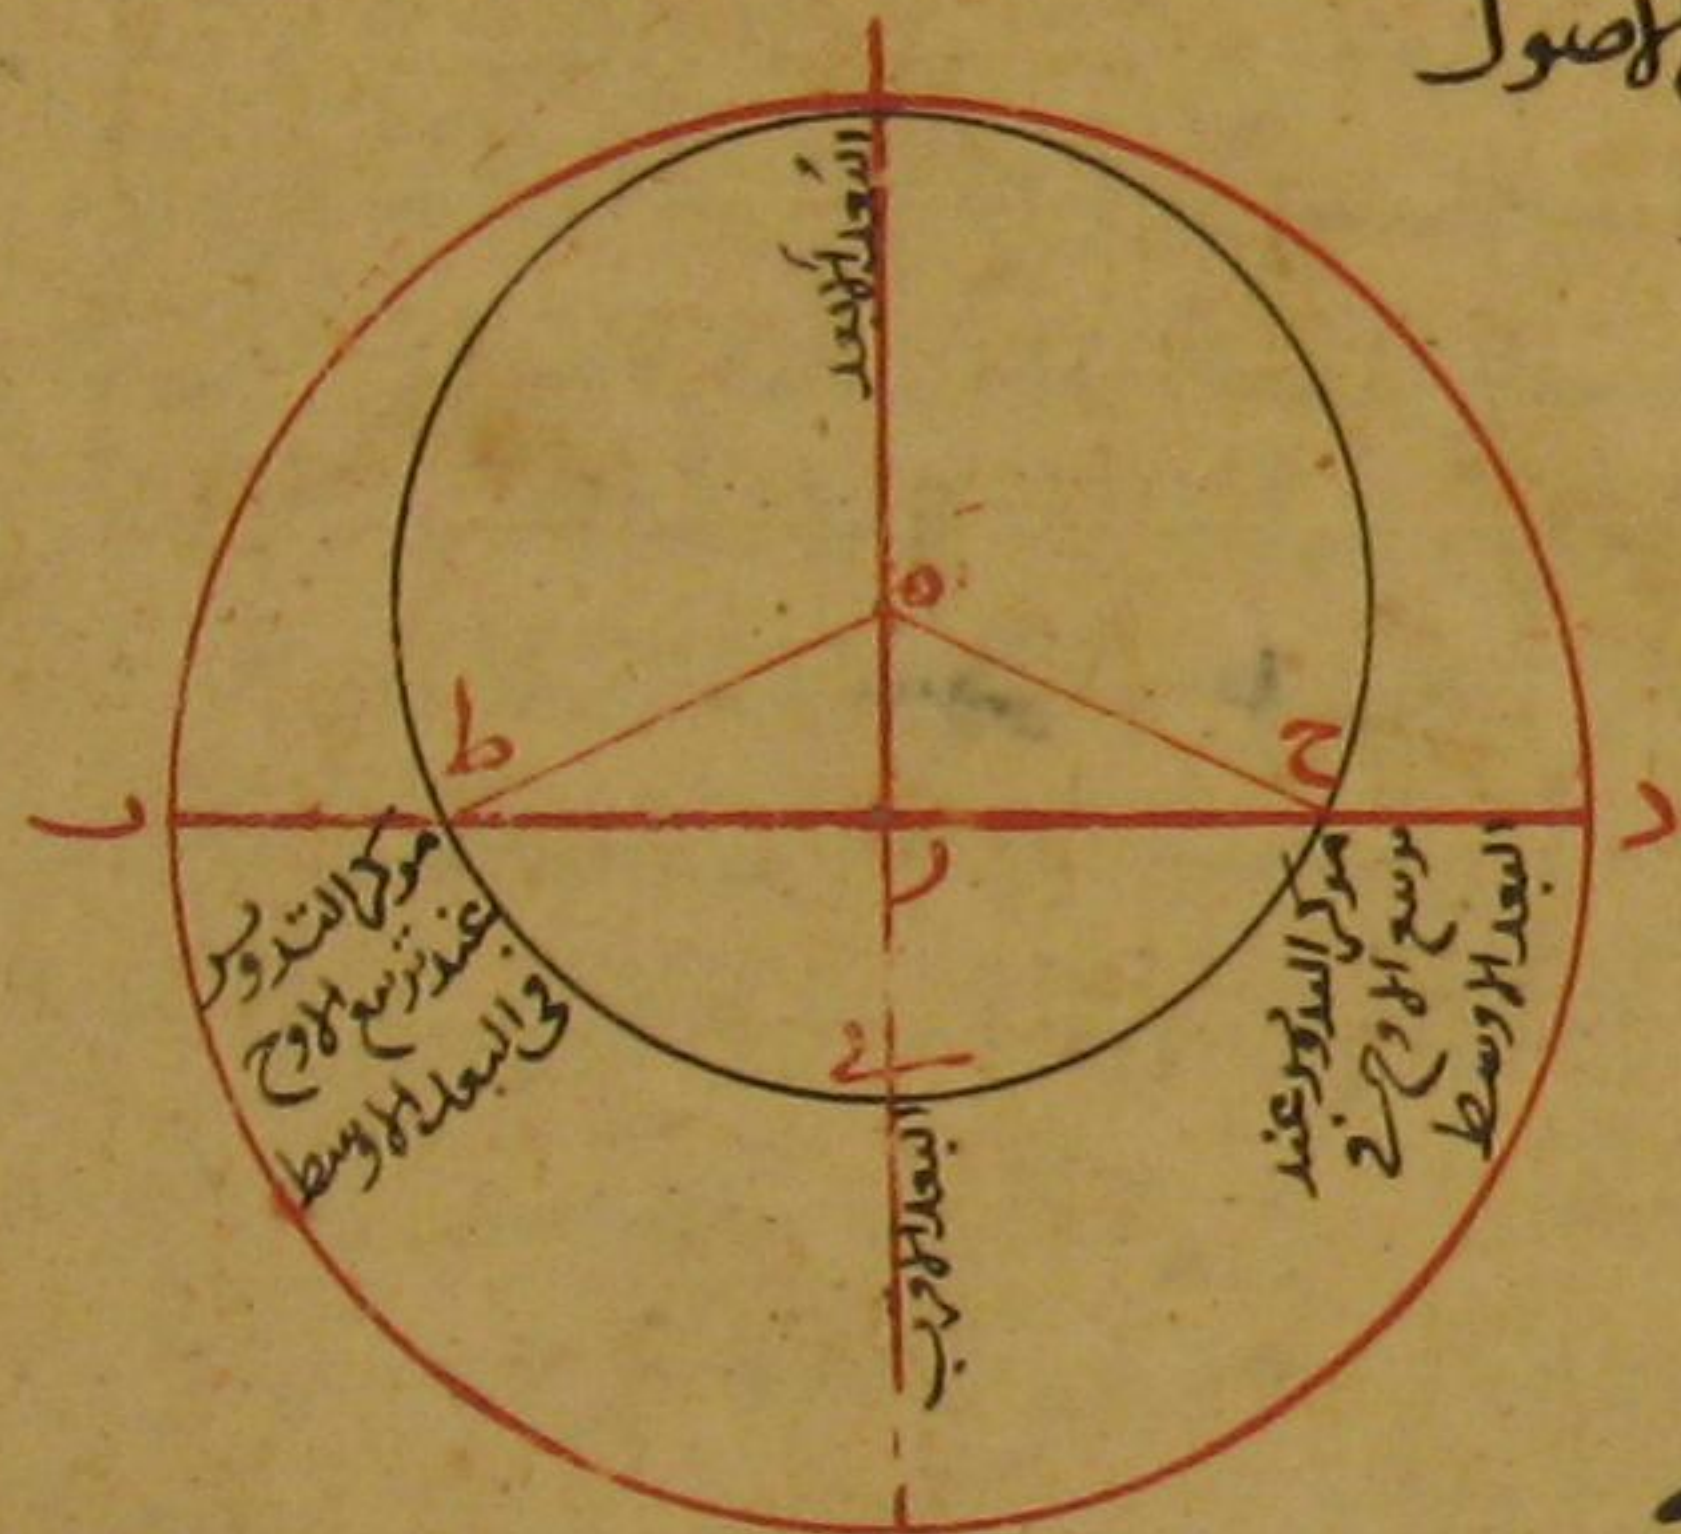 الاصول
البُعد الأبعد
ه
ط
ح
ب
د
ر
مركز التدوير
عند تربيع الاوج
فى البعد الاوسط
مركز التدوير عند
تربيع الاوج فى
البعد الاوسط
ى
البعد الاقرب